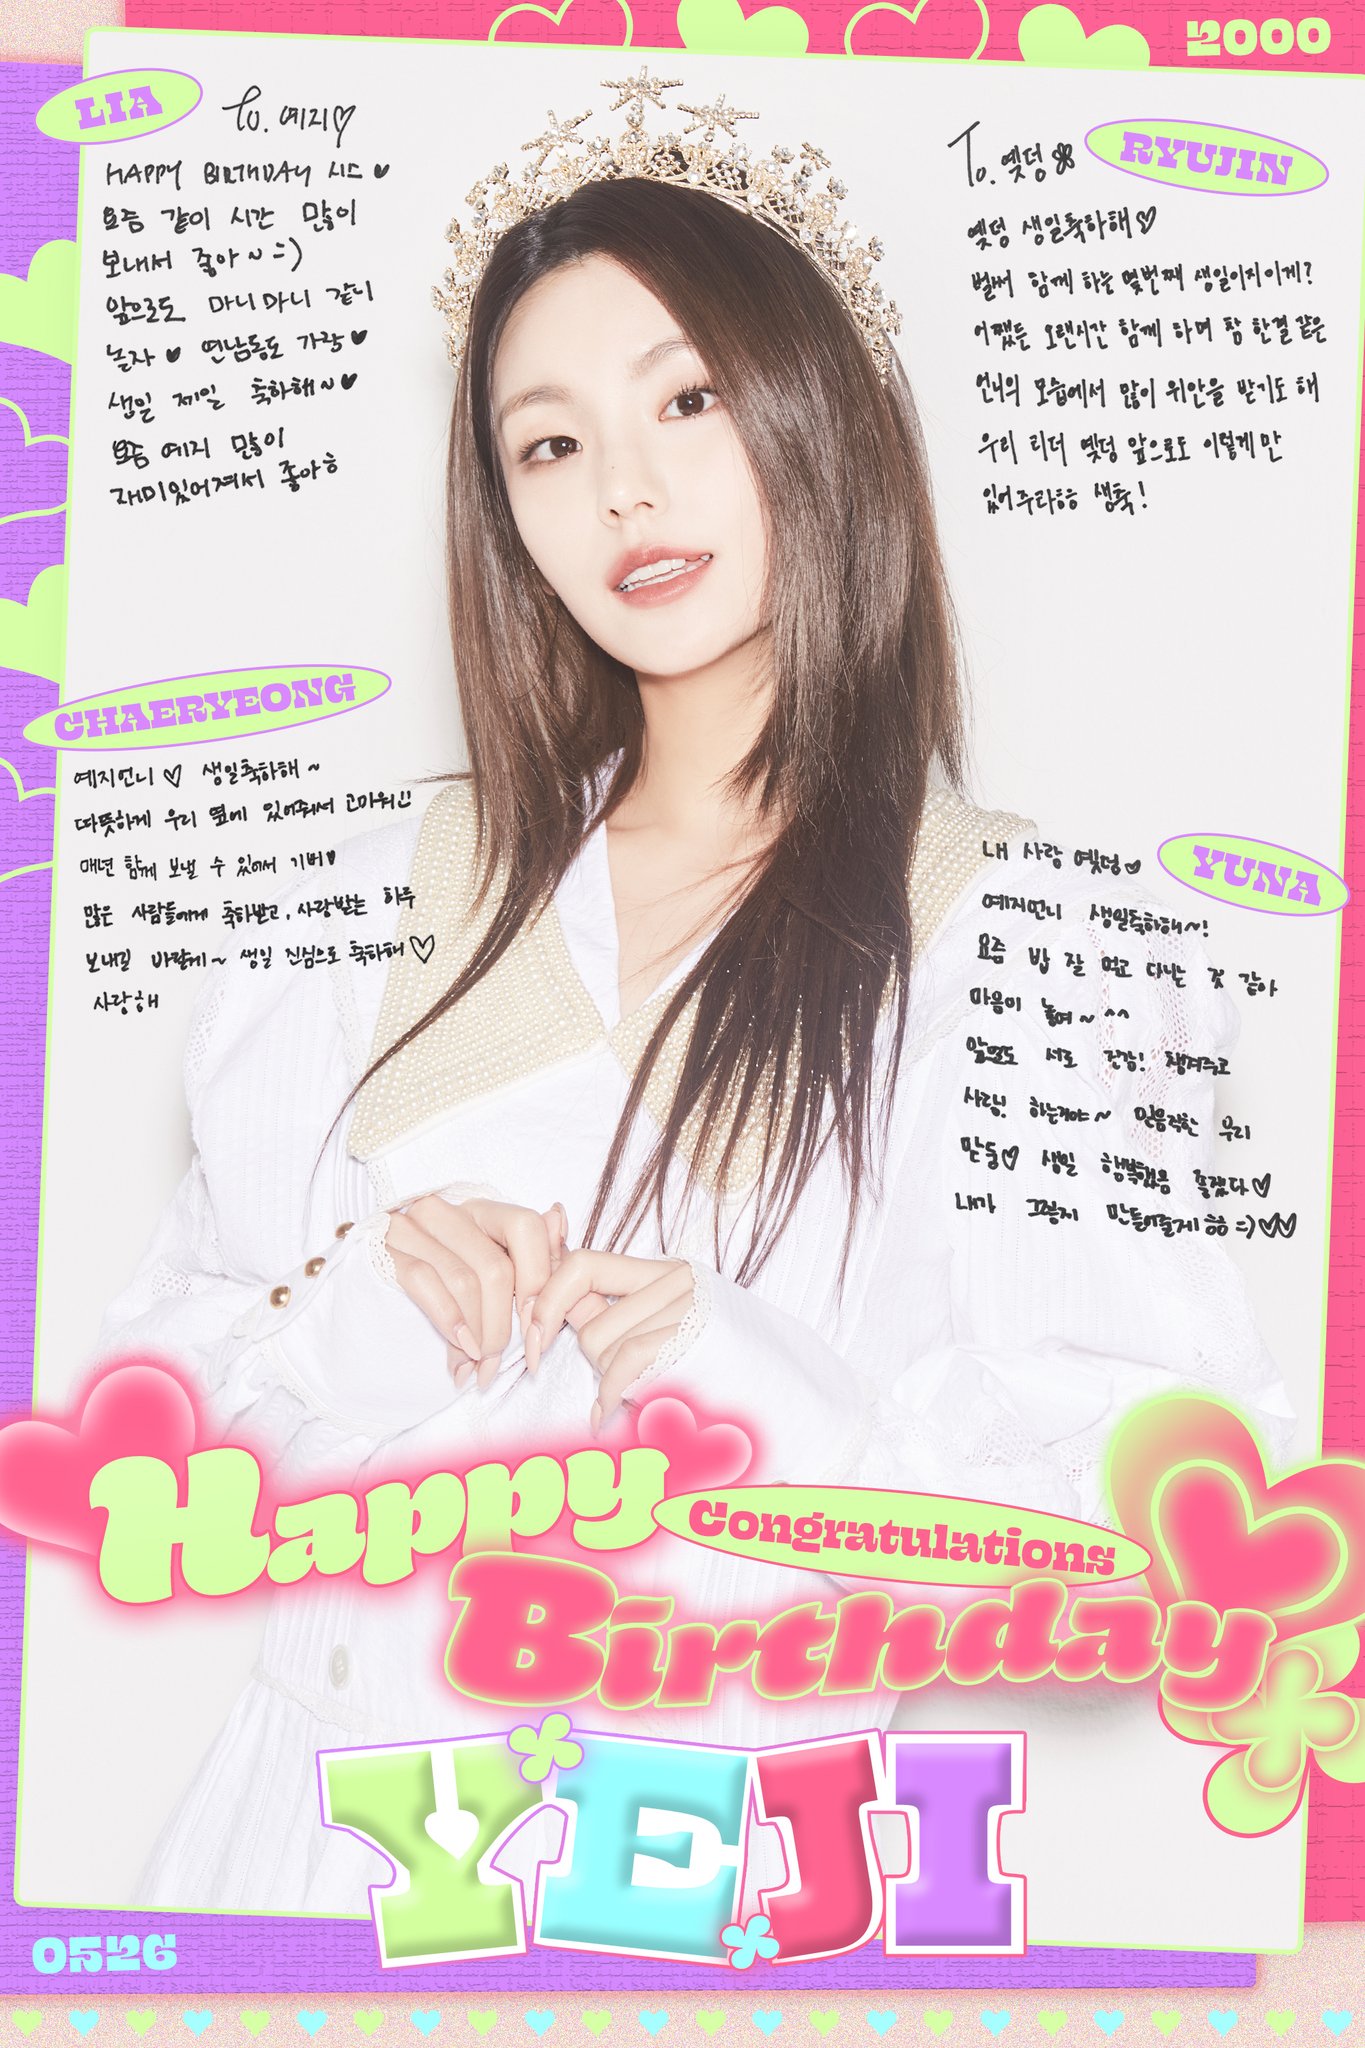 2000
LIA
To. 예지♡
HAPPY BIRTHDAY 시드♥
요즘 같이 시간 많이
보내서 좋아~ :)
앞으로도 마니마니 같이
놀자♥ 연남동도 가랑♥
생일 제일 축하해~♥
요즘 예지 많이
재미있어져서 좋아ㅎ
RYUJIN
To. 옛덩
옛덩 생일축하해♡
벌써 함께 하는 몇번째 생일이지이게?
어쨌든 오랜시간 함께 하며 참 한결 같은
언니의 모습에서 많이 위안을 받기도 해
우리 리더 옛덩 앞으로도 이렇게만
있어주라ㅎㅎ 생축!
CHAERYEONG
예지언니♡ 생일축하해~
따뜻하게 우리 옆에 있어줘서 고마워!!
매년 함께 보낼 수 있어서 기버♥
많은 사람들에게 축하받고, 사랑받는 하루
보내길 바랄게~ 생일 진심으로 축하해♡
사랑해
YUNA
내 사랑 옛덩♡
예지언니 생일축하해~!
요즘 밥 잘 먹고 다니는 것 같아
마음이 놓여~ ^^
앞으로도 서로 건강! 챙겨주고
사랑! 하는거야~ 믿음직한 우리
만둥♡ 생일 행복했음 좋겠다♡
내가 그렇게 만들어줄게 ㅎㅎ =)♡♡
Happy
Congratulations
Birthday
YEJI
0526